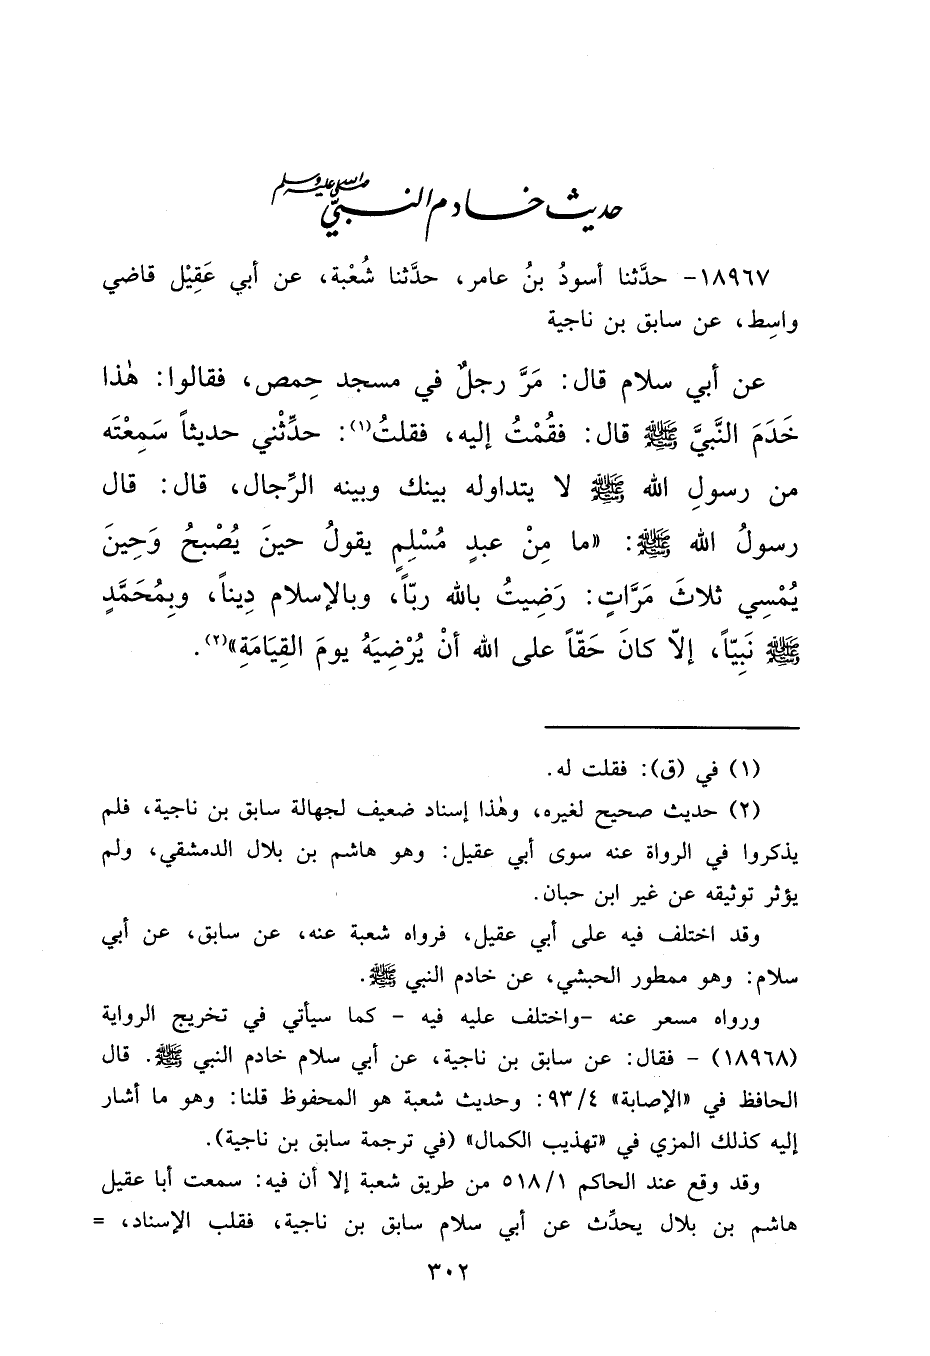 حديث خادم النبيّ صلى الله عليه وسلم
١٨٩٦٧- حدَّثنا أسودُ بنُ عامر، حدَّثنا شُعْبة، عن أبي عَقِيْل قاضي
واسِط، عن سابق بن ناجية
عن أبي سلام قال: مَرَّ رجلٌ في مسجد حِمص، فقالوا: هٰذا
خَدَمَ النَّبيَّ ﷺ قال: فقُمْتُ إليه، فقلتُ(١): حدِّثْني حديثاً سَمِعْتَه
من رسولِ الله ﷺ لا يتداوله بينك وبينه الرِّجال، قال: قال
رسولُ الله ﷺ: «ما مِنْ عبدٍ مُسْلِمٍ يقولُ حينَ يُصْبحُ وَحِينَ
يُمْسِي ثلاثَ مَرَّاتٍ: رَضِيتُ بالله ربّاً، وبالإسلام دِيناً، وبِمُحَمَّدٍ
ﷺ نَبِيّاً، إلاّ كانَ حَقّاً على الله أنْ يُرْضِيَهُ يومَ القِيَامَةِ»(٢).
(١) في (ق): فقلت له.
(٢) حديث صحيح لغيره، وهٰذا إسناد ضعيف لجهالة سابق بن ناجية، فلم
يذكروا في الرواة عنه سوى أبي عقيل: وهو هاشم بن بلال الدمشقي، ولم
يؤثر توثيقه عن غير ابن حبان.
وقد اختلف فيه على أبي عقيل، فرواه شعبة عنه، عن سابق، عن أبي
سلام: وهو ممطور الحبشي، عن خادم النبي ﷺ.
ورواه مسعر عنه -واختلف عليه فيه - كما سيأتي في تخريج الرواية
(١٨٩٦٨) - فقال: عن سابق بن ناجية، عن أبي سلام خادم النبي ﷺ. قال
الحافظ في «الإصابة» ٩٣/٤: وحديث شعبة هو المحفوظ قلنا: وهو ما أشار
إليه كذلك المزي في «تهذيب الكمال» (في ترجمة سابق بن ناجية).
وقد وقع عند الحاكم ٥١٨/١ من طريق شعبة إلا أن فيه: سمعت أبا عقيل
هاشم بن بلال يحدِّث عن أبي سلام سابق بن ناجية، فقلب الإسناد، =
٣٠٢